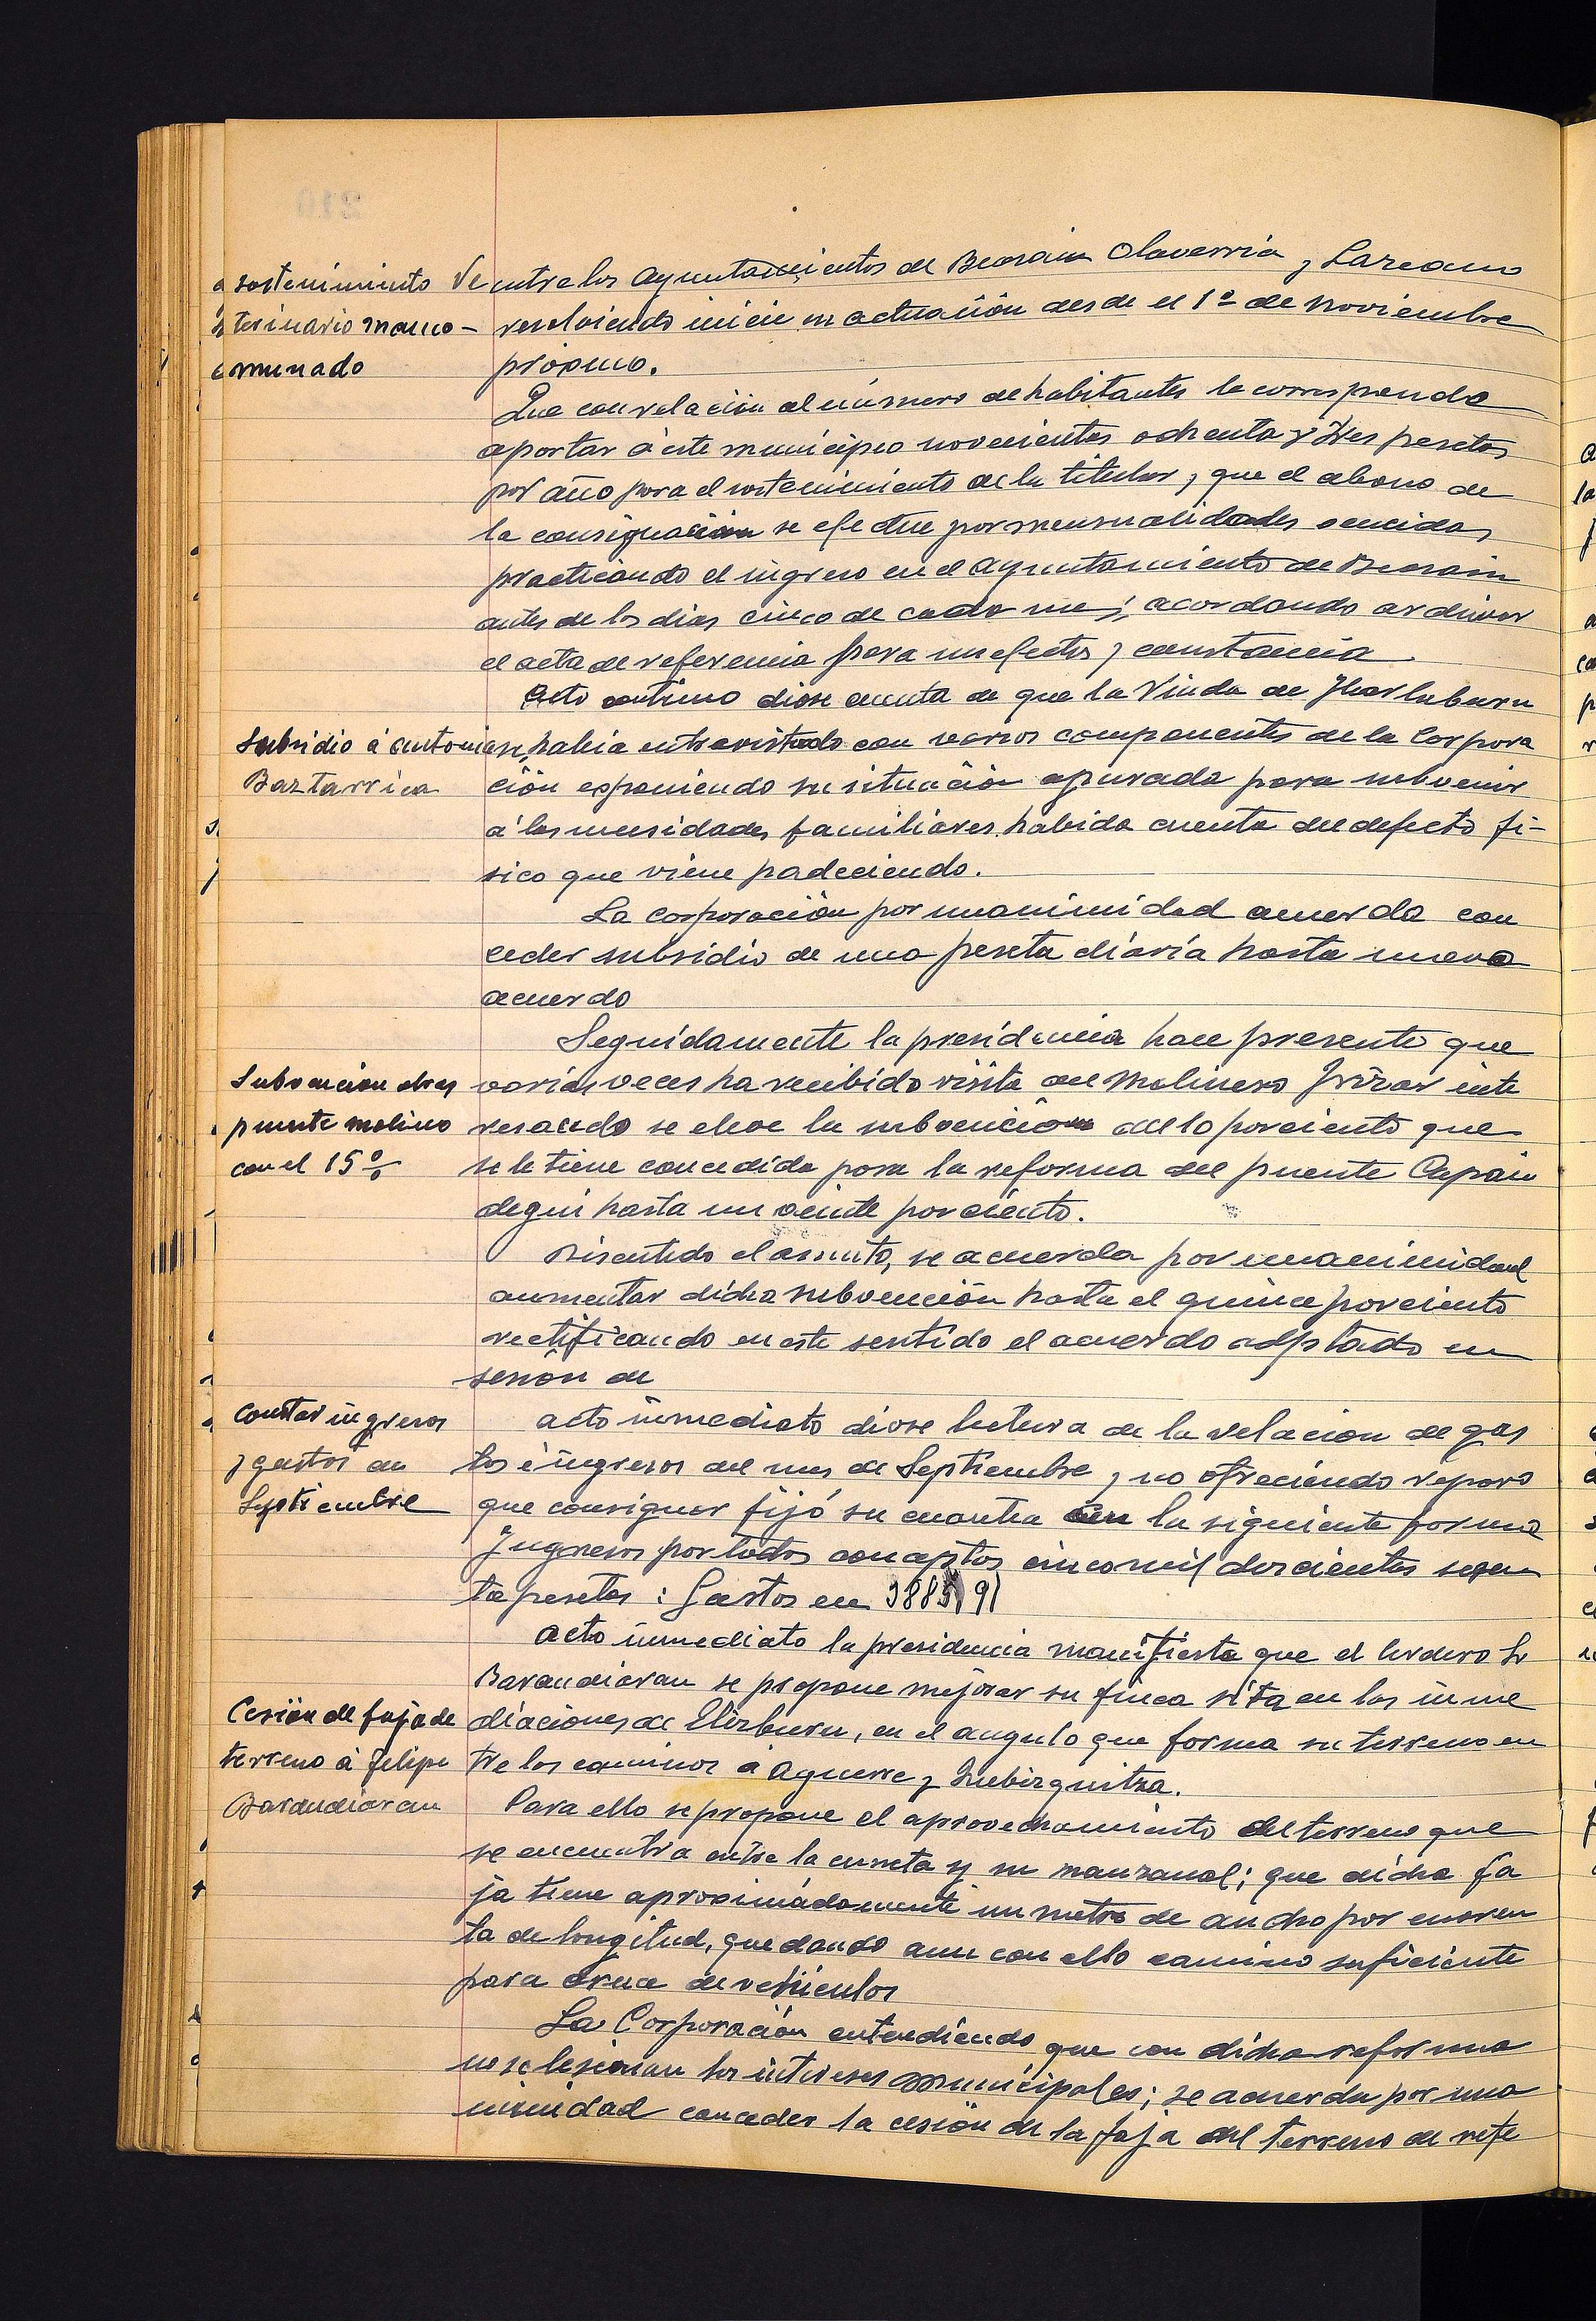 sostenimiento Ve
terinario manco-
munado
entre los Ayuntamientos de Beasain Olaverria y Lazcano
resolviendo inicie su actuación desde el 1º de Noviembre
próximo.
Que con relación al número de habitantes le corresponde
aportar á este municipio novecientas ochenta y tres pesetas
por año para el sostenimiento de la titular, y que el abono de
la consignación se efectue por mensualidades vencidas
practicando el ingreso en el Ayuntamiento de Beasain
antes de los dias cinco de cada mes; acordando archivar
el acta de referencia para sus efectos y constancia.
Acto continuo diose cuenta de que la Viuda de
Subsidio á Antonia
Baztarrica
se habia entrevistado con varios componentes de la Corpora
ción exponiendo su situación apurada para subvenir
á las necesidades familiares habida cuenta del defecto fi-
sico que viene padeciendo.
La corporación por unanimidad acuerda con
ceder subsidio de una peseta diaria hasta nuevo
acuerdo
Seguidamente la presidencia hace presente que
Subvencion obras
puente molino
con el 15%
varias veces ha recibido visita del molinero Irizar inte
resando se eleve la subvención del 10 porciento que
se le tiene concedida para la reforma del puente
degui hasta un veinte porciento.
Discutido el asunto, se acuerda por unanimidad
aumentar dicha subvención hasta el quince porciento
rectificando en este sentido el acuerdo adoptado en
sesión de
Constar ingresos
y gastos de
Septiembre
acto inmediato diose lectura de la relacion de gas
tos é ingresos del mes de Septiembre y no ofreciendo reparo
que consignar fijó su cuantia en la siguiente forma
Ingresos por todos conceptos cinco mil doscientas sesen
ta pesetas: Gastos en 3885,91
Acto inmediato la presidencia manifiesta que el herdero Sr
Cesión de faja de
terreno á Felipe
Barandiaran
Barandiaran se propone mejorar su finca sita en las inme
diaciones de Elizburu, en el angulo que forma su terreno en
tre los caminos á Aguerre y
Para ello se propone el aprovechamiento del terreno que
se encuentra entre la cuneta y su manzanal; que dicha fa
ja tiene aproximadamente un metro de ancho por cuaren
ta de longitud, quedando aun con ello camino suficiente
para cruce de vehiculos
La Corporación entendiendo que con dicha reforma
no se lesionan los intereses municipales; se acuerda por una
nimidad conceder la cesión de la faja del terreno de refe